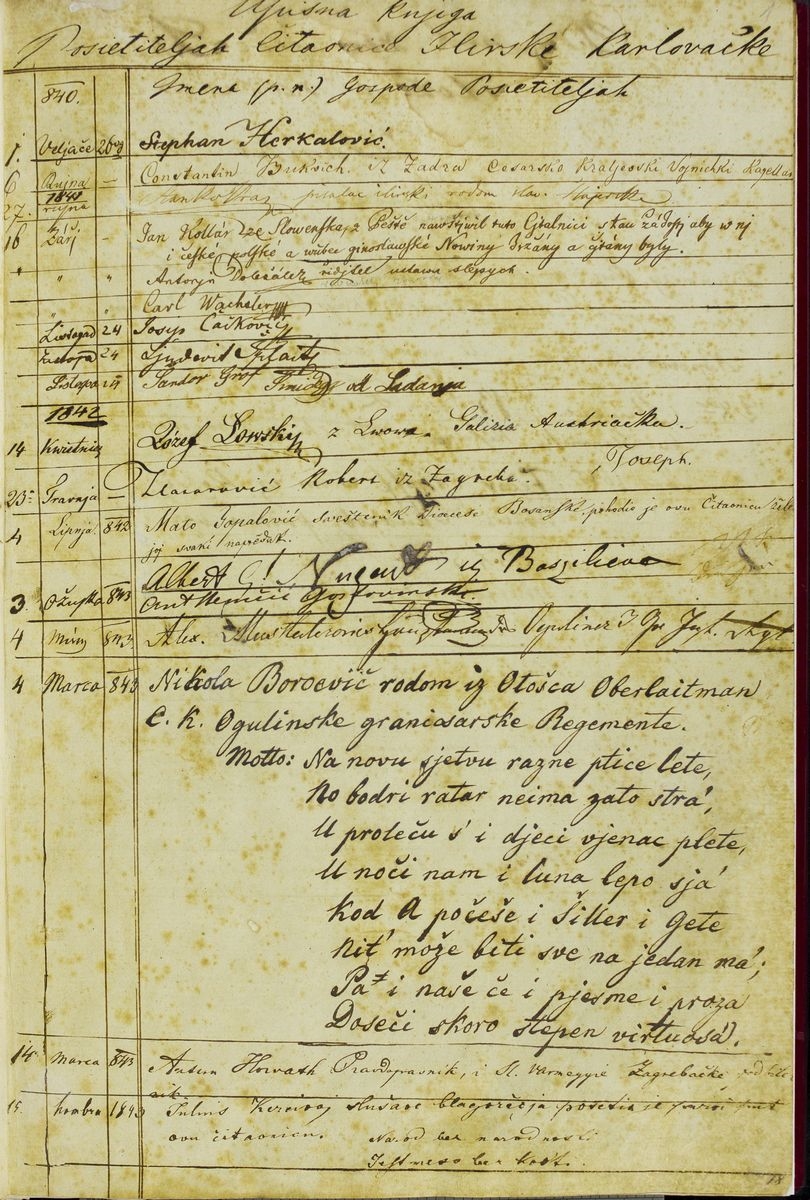 Upisna knjiga
Posietiteljah Čitaonice Ilirske Karlovačke
840. Imena (p. n.) Gospode Posietiteljah
1. Veljače 26 Stephan Herkalović.
6 Rujna — Constantin Bukvich. iz Zadra Cesarsko Kraljevski Vojnichki Kapellan
1841
27. rujna Stanko Vraz pisalac ilirski rodom
16 Září — Jan Kollár ze Slowenska, z Pešté nawštjwil tuto Čjtalnici s tau žádostj aby w nj
i české, polské a wůbec ginoslawské Nowiny držány a čjtány byly.
" " " Antonjn Doležálek ředjtel ustawu slepých.
" " " Carl Wachsler
Listopad 24 Josip Čačković
24 Ljudevit
Listopa 24 Šandor Grof od
1842
14 Kwietnia Józef Łowski z Lwowa. Galizia Austriačka.
Joseph.
23 Travnja — Robert iz Zagreba.
4 Lipnja 842 Mato Topalović sveštenik Diacese Bosanske, pohodio je ovu Čitaonicu želi
joj svaki napredak.
Albert G! Nugent iz Bosilieva
3 Ožujka 843
4 843 Alex.
4 Marca 843 Nikola Boroević rodom iz Otošca Oberlaitman
C. K. Ogulinske graničarske Regemente.
Motto: Na novu sjetvu razne ptice lete,
No bodri ratar neima zato stra',
U proleću s' i djeci vjenac plete,
U noči nam i luna lepo sja'
Kod A počeše i Šiller i Gete
Nit' može biti sve na jedan ma';
Pa i naše će i pjesme i proza
Doseči skoro stepen virtuosa'.
14 Marca 843 Antun Horvath Pravdopravnik, i Sl. Varmegyie Zagrebačke
15. 1843 slušaoc blagorečja posetio je
ovu čitaonicu. Narod bez narodnosti
Jest meso bez kosti.